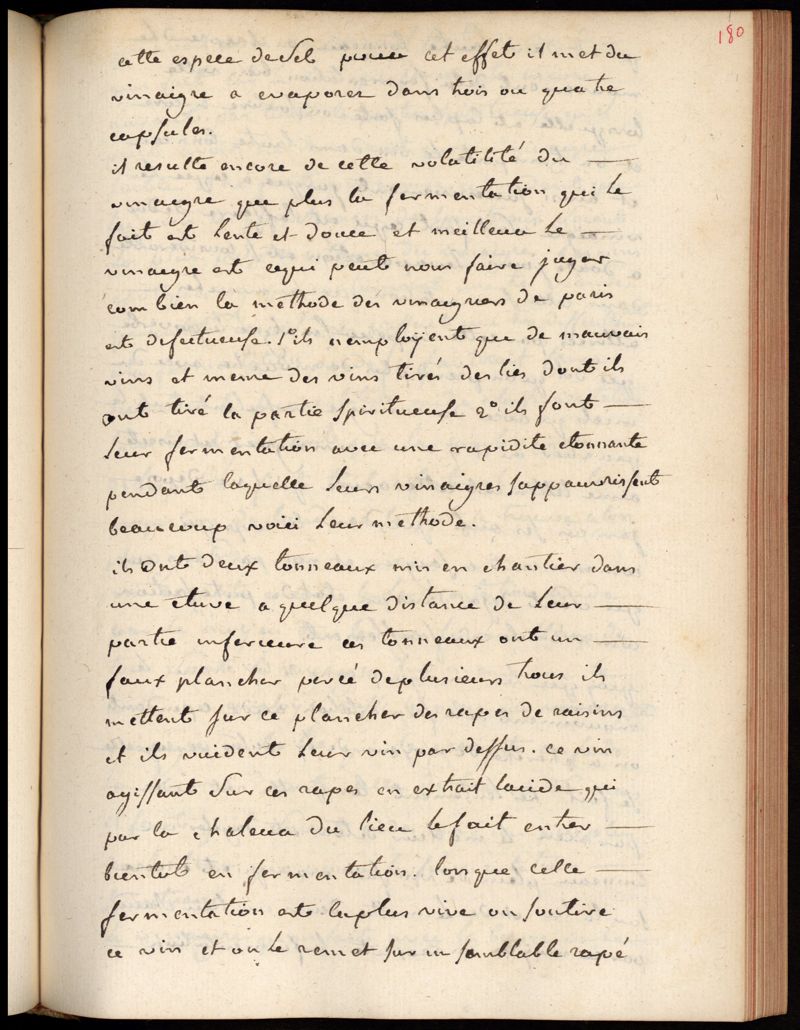 180
cette espece de Sel pour cet effet il met du
vinaigre a evaporer dans trois ou quatre
capsules.
il resulte encore de cette volatilité du —
vinaigre que plus la fermentation qui le
fait est Lente et douce et meilleur Le —
vinaigre est cequi peut nous faire juger
combien la methode des vinaigriers de paris
est defectueuse. 1º ils nemployent que de mauvais
vins et meme des vins tirés des lies dont ils
ont tiré la partie Spiritueuse 2º ils font —
Leur fermentation avec une rapidite etonnante
pendant laquelle Leurs vinaigres sappauvrissent
beaucoup voici Leur methode.
ils ont deux tonneaux mis en chantier dans
une etuve a quelque distance de Leur —
partie inferieure ces tonneaux ont un —
faux plancher percé deplusieurs trous ils
mettent sur ce plancher des rapes de raisins
et ils vuident Leur vin par dessus. ce vin
agissant Sur ces rapes en extrait lacide qui
par la chaleur du lieu le fait entrer —
bientot en fermentation. lorsque celle —
fermentation est laplus vive on soutire
ce vin et on Le remet sur un semblable rapé